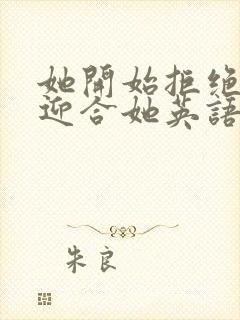 她開始拒绝
迎合她英語
朱良